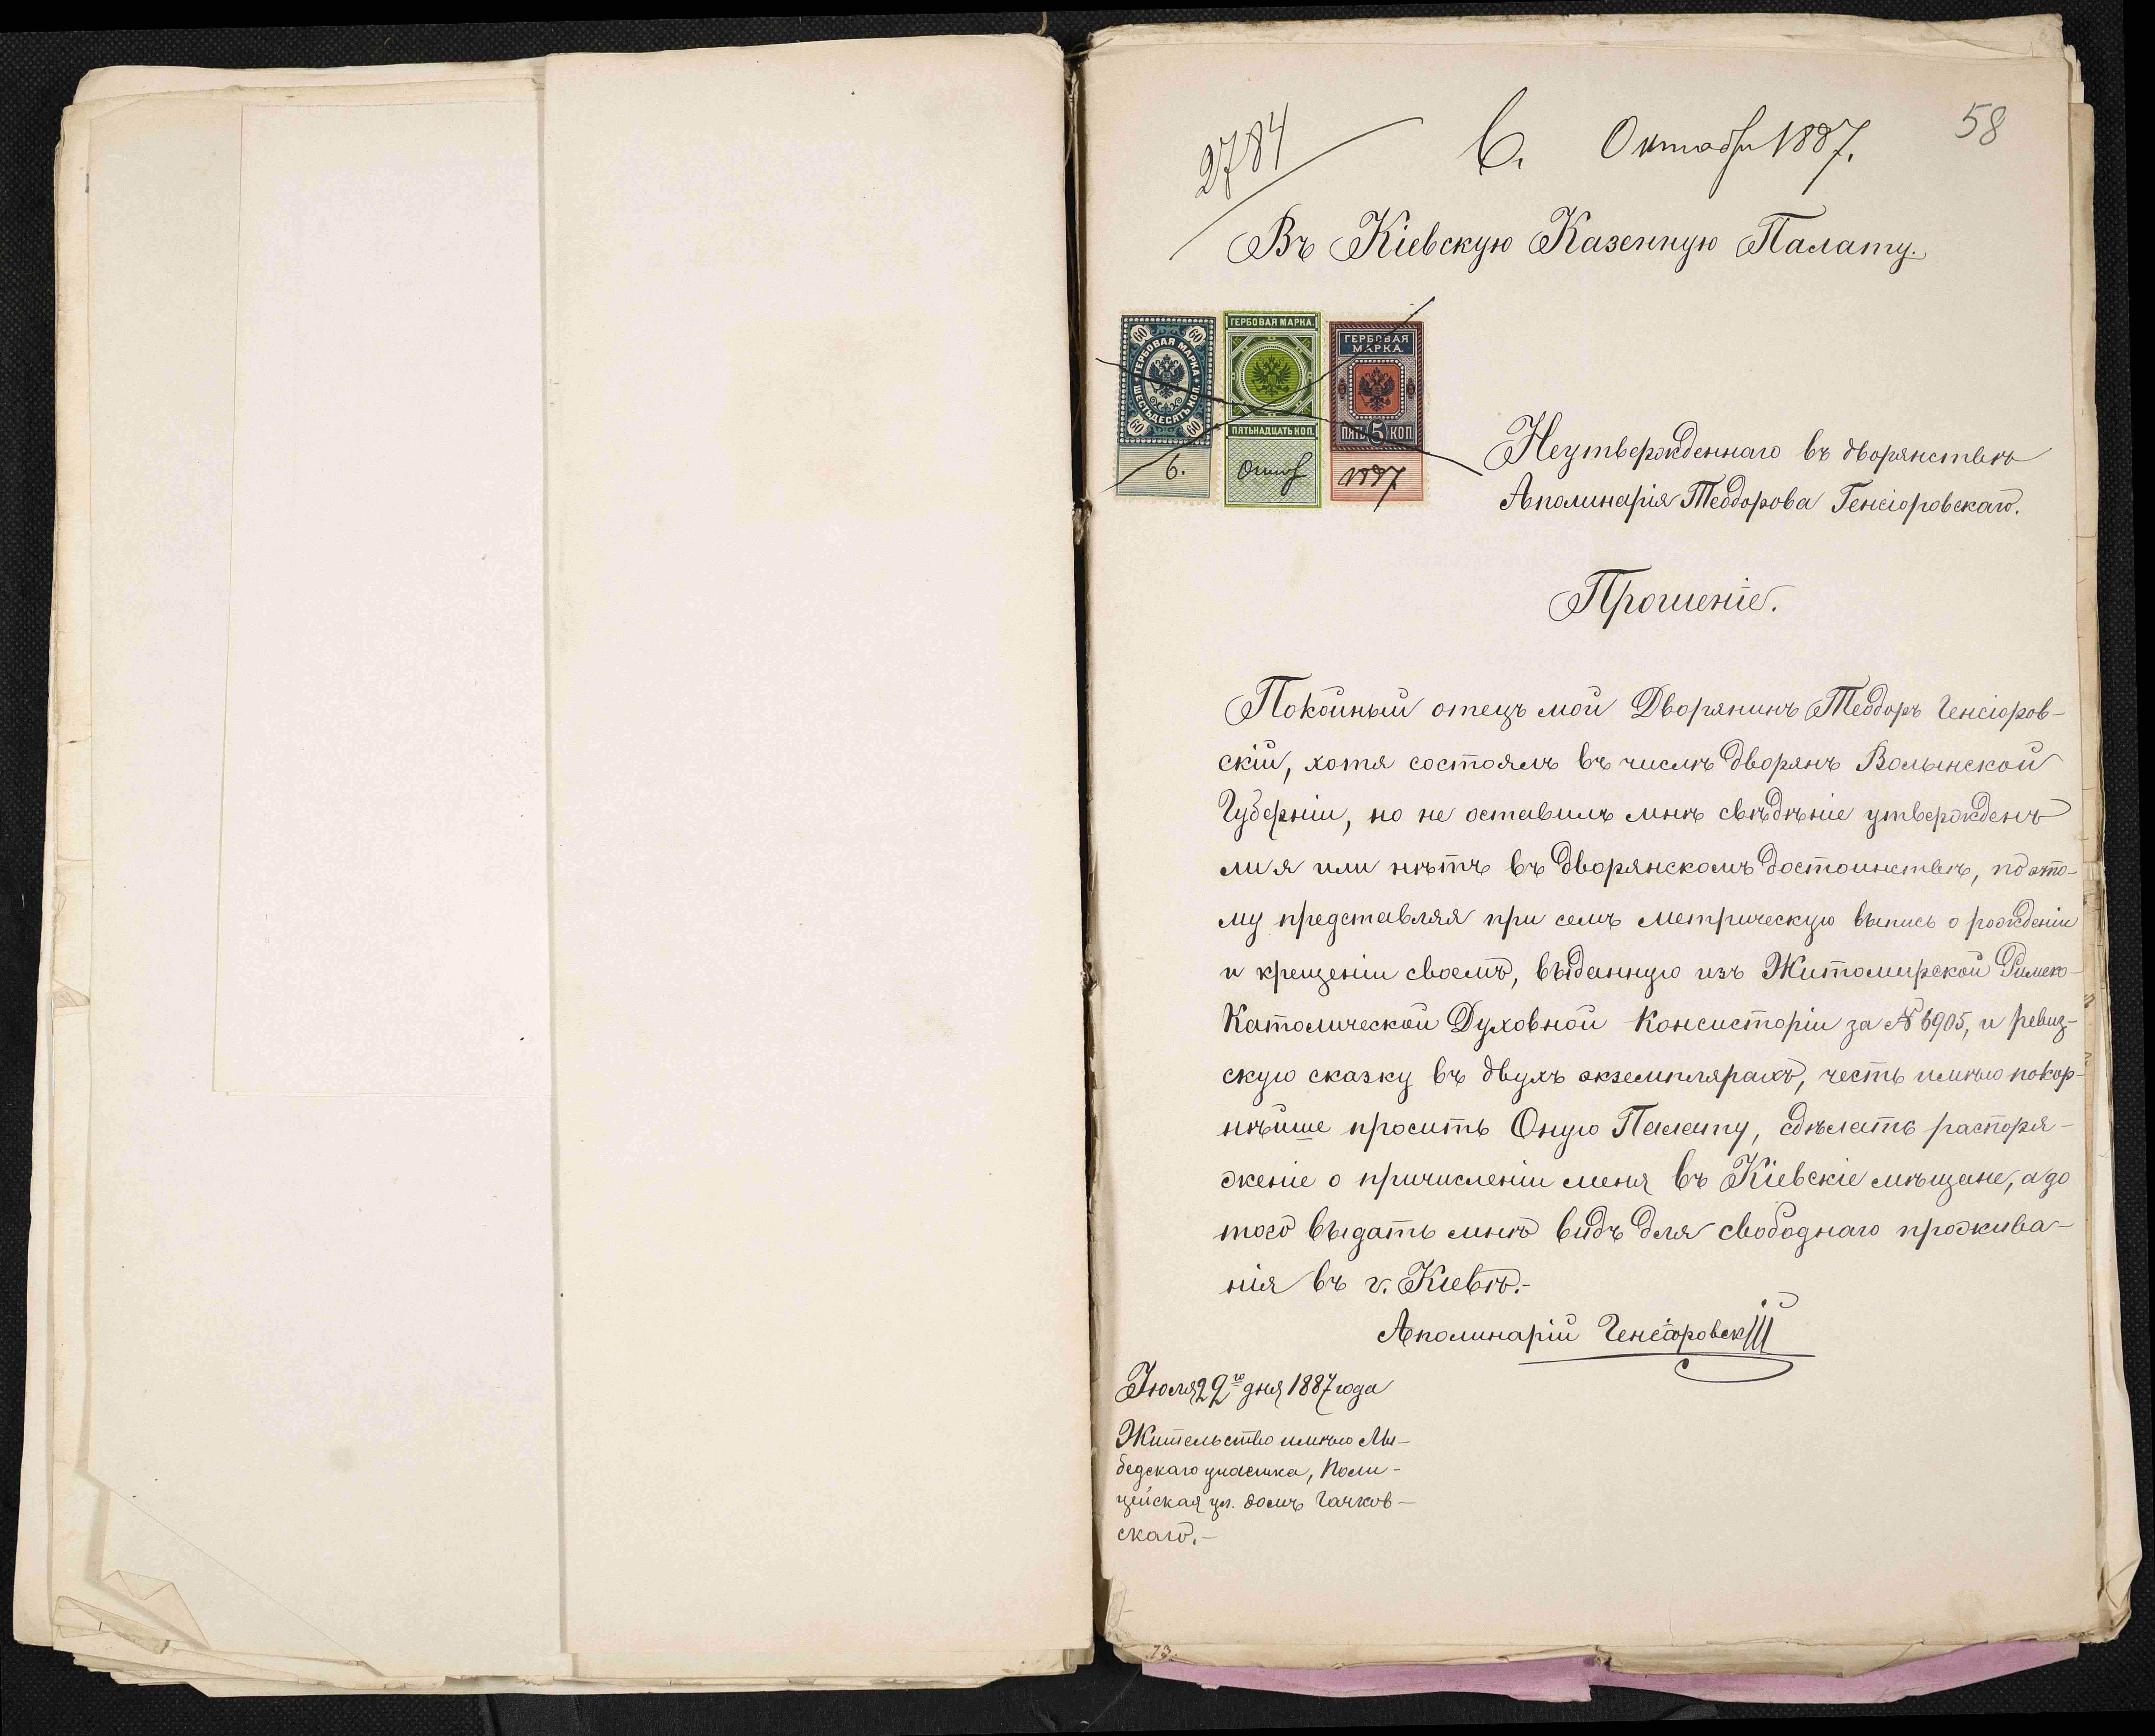 58
2784
6. Октября 1887.
Въ Кіевскую Казенную Палату.
60 60
ГЕРБОВАЯ МАРКА
ШЕСТЬДЕСЯТЪ КОП.
60 60
6.
ГЕРБОВАЯ МАРКА.
ПЯТЬНАДЦАТЬ КОП.
Октяб
ГЕРБОВАЯ
МАРКА.
ПЯТЬ 5 КОП
1887
Неутвержденнаго въ дворянствѣ
Аполинарія Теодорова Генсіоровскаго.
Прошеніе.
Покойный отецъ мой Дворянинъ Теодоръ Генсіоров-
скій, хотя состоялъ въ числѣ дворянъ Волынской
Губерніи, но не оставилъ мнѣ свѣдѣніе утвержденъ
ли я или нѣтъ въ дворянскомъ достоинствѣ, по это-
му представляя при семъ метрическую выпись о рожденіи
и крещеніи своемъ, выданную изъ Житомирской Римско-
Католической Духовной Консисторіи за № 6905, и ревиз-
скую сказку въ двухъ экземплярахъ, честь имѣю покор-
нѣйше просить Оную Палату, сдѣлать распоря-
женіе о причисленіи меня въ Кіевскіе мѣщане, а до
того выдать мнѣ видъ для свободнаго прожива-
нія въ г. Кіевѣ.-
Аполинарій Генсіоровскій
Іюля 29го дня 1887 года
Жительство имѣю Лы-
бедскаго участка, Поли-
цейская ул. домъ Гачков-
скаго.-
73.